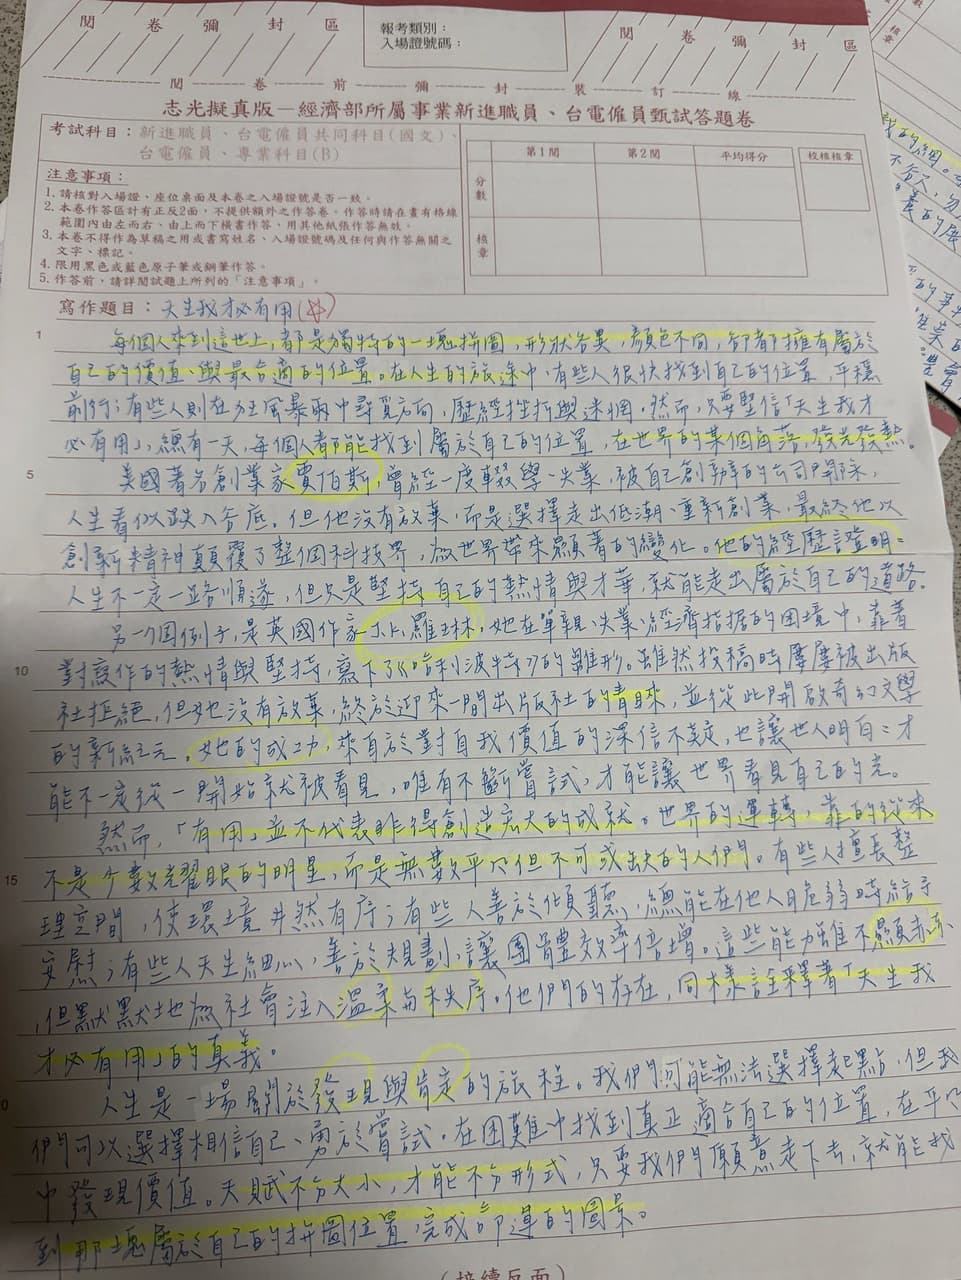 閱 卷 彌 封 區
報考類別：
入場證號碼：
閱 卷 彌 封 區
閱 卷 前 彌 封 裝 訂 線
志光擬真版－經濟部所屬事業新進職員、台電僱員甄試答題卷
考試科目：新進職員、台電僱員共同科目(國文)、
台電僱員、專業科目(B)
第1閱 第2閱 平均得分 校核核章
分數
核章
注意事項：
1. 請核對入場證、座位桌面及本卷之入場證號是否一致。
2. 本卷作答區計有正反2面，不提供額外之作答卷。作答時請在畫有格線
範圍內由左而右、由上而下橫書作答，用其他紙張作答無效。
3. 本卷不得作為草稿之用或書寫姓名、入場證號碼及任何與作答無關之
文字、標記。
4. 限用黑色或藍色原子筆或鋼筆作答。
5. 作答前，請詳閱試題上所列的「注意事項」。
寫作題目：天生我才必有用(☆)
1
每個人來到這世上，都是獨特的一塊拼圖，形狀各異，顏色不同，卻都擁有屬於
自己的價值、與最合適的位置。在人生的旅途中，有些人很快找到自己的位置，平穩
前行；有些人則在狂風暴雨中尋覓方向，歷經挫折與迷惘。然而，只要堅信「天生我才
必有用」，總有一天，每個人都能找到屬於自己的位置，在世界的某個角落，發光發熱。
5
美國著名創業家賈伯斯，曾經一度輟學、失業，被自己創辦的公司開除，
人生看似跌入谷底。但他沒有放棄，而是選擇走出低潮、重新創業，最終他以
創新精神顛覆了整個科技界，為世界帶來顯著的變化。他的經歷證明：
人生不一定一路順遂，但只是堅持自己的熱情與才華，就能走出屬於自己的道路。
另一個例子，是英國作家J.K.羅琳，她在單親、失業、經濟拮据的困境中，靠著
10
對寫作的熱情與堅持，寫下了《哈利波特》的雛形。雖然投稿時屢屢被出版
社拒絕，但她沒有放棄，終於迎來一間出版社的青睞，並從此開啟奇幻文學
的新紀元。她的成功，來自於對自我價值的深信不疑，也讓世人明白：才
能不一定從一開始就被看見，唯有不斷嘗試，才能讓世界看見自己的光。
然而，「有用」並不代表非得創造宏大的成就。世界的運轉，靠的從來
15
不是少數光耀眼的明星，而是無數平凡但不可或缺的人們。有些人擅長整
理空間，使環境井然有序；有些人善於傾聽，總能在他人脆弱時給予
安慰；有些人天生細心，善於規劃，讓團體效率倍增。這些能力雖不顯赫，
，但默默地為社會注入溫柔與秩序。他們的存在，同樣詮釋著「天生我
才必有用」的真義。
0
人生是一場關於發現與肯定的旅程。我們可能無法選擇起點，但我
們可以選擇相信自己、勇於嘗試。在困難中找到真正適合自己的位置，在平凡
中發現價值。天賦不分大小，才能不分形式，只要我們願意走下去，就能找
到那塊屬於自己的拼圖位置，完成命運的圖景。
(接續反面)